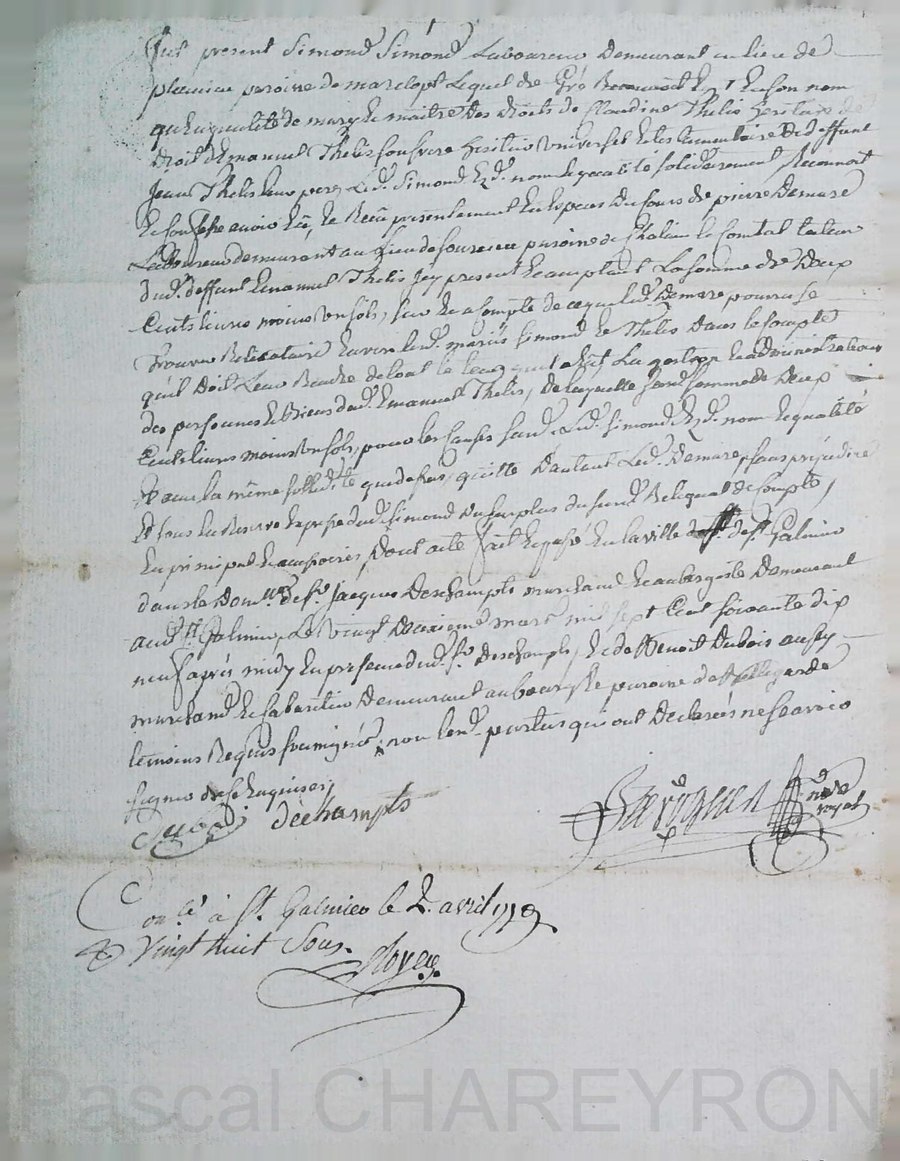 fut present Simond Simond Laboureur Demeurant au lieu de
paroisse de marclopt Lequel de Gré En son nom
qu'en qualité de mary Le maitre Des Droits de Claudine Thelis
Droit D'Emanuel Thelis son frere heritier universel testamentaire De deffunt
Jean Thelis leur pere, Led. Simond Esd. nom Et qualité solidairement Reconnoit
Et Confesse avoir Eû, Et Reçu présentement En Especes Du Cours de pierre Demare
Laboureur demeurant au lieu de paroisse de Chalain le Comtal tuteur
dud. deffunt Emanuel Thelis icy present Et acceptant La somme de Deux
Cents livres moins Un sols, sur Et a Compte de ce que led. Demare pourra se
trouver Reliquataire Envers lesd. mariés Simond Et Thelis Dans le Compte
qu'il Doit Leur Rendre de tout le tems qu'il a Eût La gestion Et administration
des personnes Et Biens dud. Emanuel Thelis, De laquelle susd. somme de Deux
Cents livres moins Un sols, pour les Causes susd. Led. Simond Esd. nom Et qualité
Et Sous la même sollidité que dessus, quitte D'autant Led. Demare, sans prejudice
Et sous La Reserve Expresse dud. Simond Du surplus du susd. Reliquat de Compte,
En principal Et accessoires, Dont acte fait Et passé En la ville de St. Galmier
dans le Dom.lle de sr. Jacques Deschampts marchand Et aubergiste Demeurant
aud. St. Galmier, Le vingt Deuxieme mars mil sept Cent soixante dix
neuf après midy En presence dud. sr. Deschampts, Et de Benoit Dubois aussy
marchand Et Cabaretier Demeurant au bourg Et paroisse de Bellegarde
temoins Requis soussignés, non lesd. parties qui ont Declarées ne sçavoir
signer de ce Enquises,
Dubois déchampts
nore royal
Con.lé à St. Galmier le 2. avril 1779
Vingt huit Sous.
Noyer
Pascal CHAREYRON